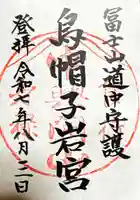 冨士山道中守護
烏帽子岩宮
登拝 令和七年八月二日